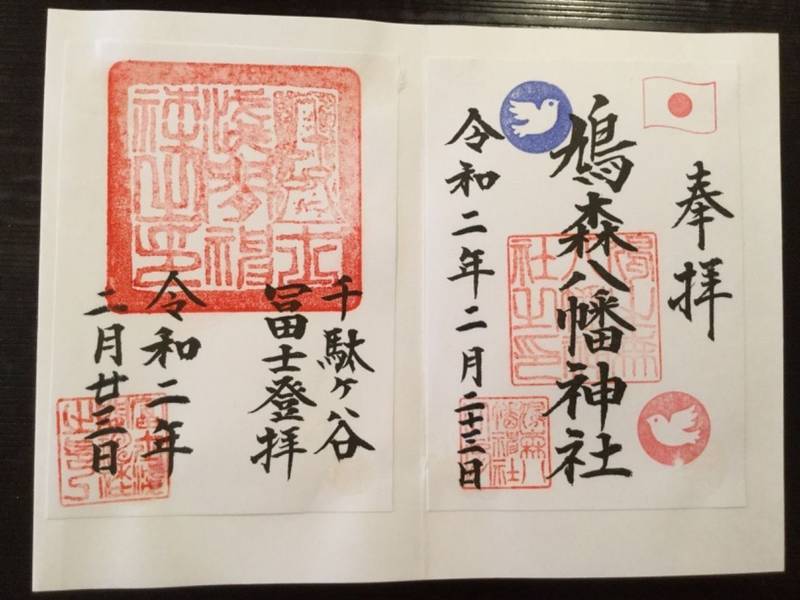 奉拝
鳩森八幡神社
令和二年二月二十三日
千駄ヶ谷
冨士登拝
令和二年
二月廿三日